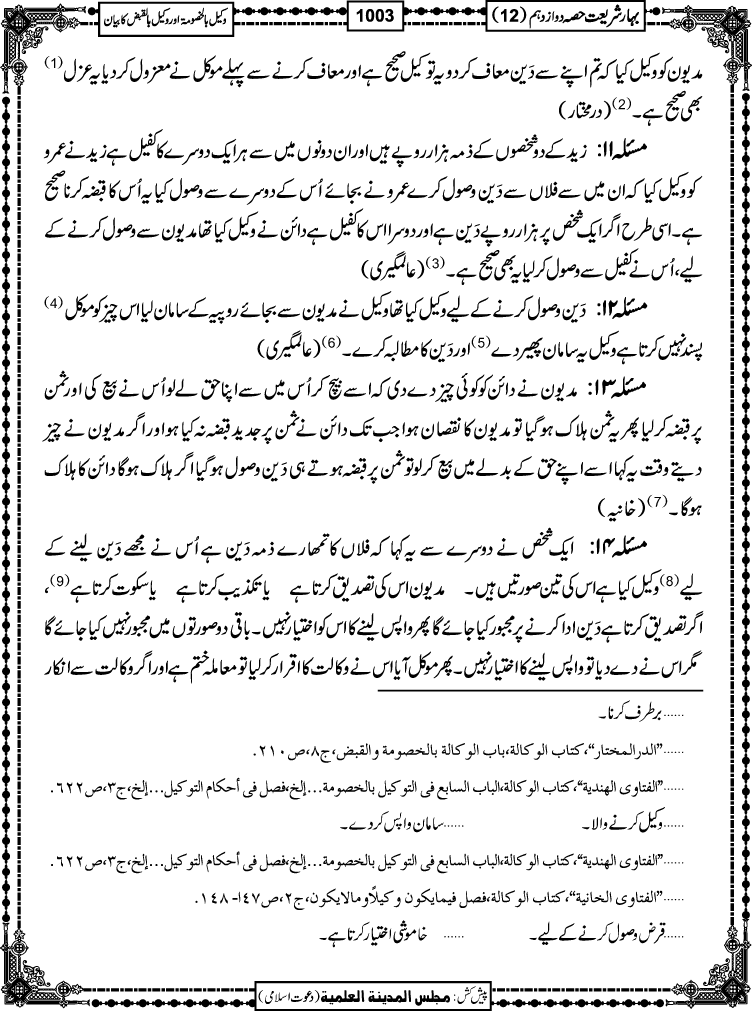 بہار شریعت حصہ دوازدہم (12)
1003
وکیل بالخصومۃ اور وکیل بالقبض کا بیان
مدیون کو وکیل کیا کہ تم اپنے سے دَین معاف کردو یہ توکیل صحیح ہے اور معاف کرنے سے پہلے موکل نے معزول کردیا یہ عزل (1)
بھی صحیح ہے۔(2) (درمختار)
مسئلہ ۱۱: زید کے دو شخصوں کے ذمہ ہزار روپے ہیں اور ان دونوں میں سے ہر ایک دوسرے کا کفیل ہے زید نے عمرو
کو وکیل کیا کہ ان میں سے فلاں سے دَین وصول کرے عمرو نے بجائے اُس کے دوسرے سے وصول کیا یہ اُس کا قبضہ کرنا صحیح
ہے۔ اسی طرح اگر ایک شخص پر ہزار روپے دَین ہے اور دوسرا اس کا کفیل ہے دائن نے وکیل کیا تھا مدیون سے وصول کرنے کے
لیے، اُس نے کفیل سے وصول کرلیا یہ بھی صحیح ہے۔(3) (عالمگیری)
مسئلہ ۱۲: دَین وصول کرنے کے لیے وکیل کیا تھا وکیل نے مدیون سے بجائے روپیہ کے سامان لیا اس چیز کو موکل (4)
پسند نہیں کرتا ہے وکیل یہ سامان پھیر دے (5) اور دَین کا مطالبہ کرے۔(6) (عالمگیری)
مسئلہ ۱۳: مدیون نے دائن کو کوئی چیز دے دی کہ اسے بیچ کر اُس میں سے اپنا حق لے لو اُس نے بیع کی اور ثمن
پر قبضہ کرلیا پھر یہ ثمن ہلاک ہوگیا تو مدیون کا نقصان ہوا جب تک دائن نے ثمن پر جدید قبضہ نہ کیا ہو اور اگر مدیون نے چیز
دیتے وقت یہ کہا اسے اپنے حق کے بدلے میں بیع کرلو تو ثمن پر قبضہ ہوتے ہی دَین وصول ہوگیا اگر ہلاک ہوگا دائن کا ہلاک
ہوگا۔(7) (خانیہ)
مسئلہ ۱۴: ایک شخص نے دوسرے سے یہ کہا کہ فلاں کا تمھارے ذمہ دَین ہے اُس نے مجھے دَین لینے کے
لیے (8) وکیل کیا ہے اس کی تین صورتیں ہیں۔ مدیون اس کی تصدیق کرتا ہے یا تکذیب کرتا ہے یا سکوت کرتا ہے (9)،
اگر تصدیق کرتا ہے دَین ادا کرنے پر مجبور کیا جائے گا پھر واپس لینے کا اس کو اختیار نہیں۔ باقی دو صورتوں میں مجبور نہیں کیا جائے گا
مگر اس نے دے دیا تو واپس لینے کا اختیار نہیں۔ پھر موکل آیا اس نے وکالت کا اقرار کرلیا تو معاملہ ختم ہے اور اگر وکالت سے انکار
......برطرف کرنا۔
......"الدرالمختار"،کتاب الوکالة،باب الوکالة بالخصومة والقبض،ج٨،ص٢١٠.
......"الفتاوی الهندية"،کتاب الوکالة،الباب السابع فی التوکیل بالخصومة...إلخ،فصل فی أحکام التوکیل...إلخ،ج٣،ص٦٢٢.
......وکیل کرنے والا۔ ......سامان واپس کردے۔
......"الفتاوی الهندية"،کتاب الوکالة،الباب السابع فی التوکیل بالخصومة...إلخ،فصل فی أحکام التوکیل...إلخ،ج٣،ص٦٢٢.
......"الفتاوی الخانية"،کتاب الوکالة،فصل فیمایکون وکیلًاومالایکون،ج٢،ص١٤٧-١٤٨.
......قرض وصول کرنے کے لیے۔ ......خاموشی اختیار کرتا ہے۔
پیش کش: مجلس المدینة العلمیة (دعوت اسلامی)